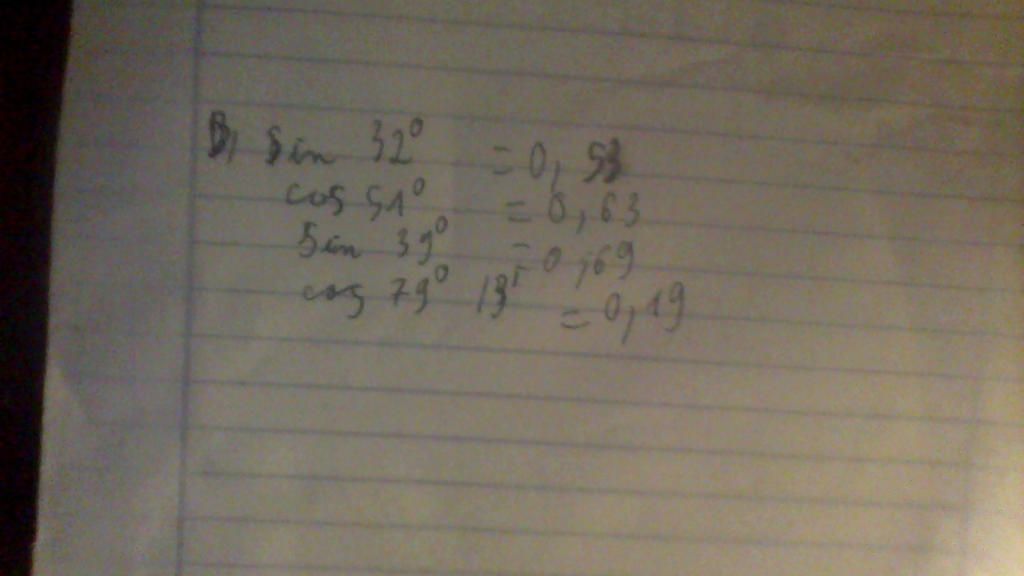 B, Sin 32° = 0, 53
cos 51° = 0, 63
Sin 39° = 0,69
cos 79° 13' = 0,19